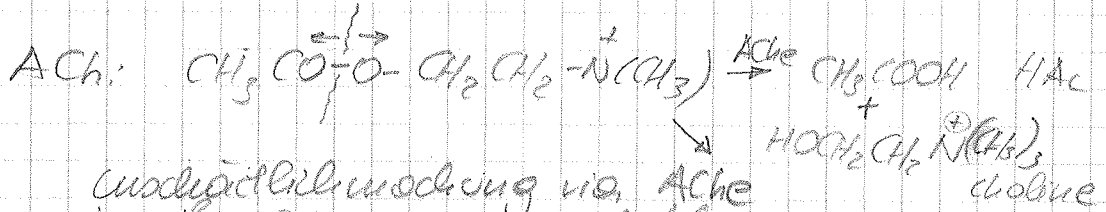 ACh: CH₃CO-O-CH₂CH₂-N⁺(CH₃) → AChe CH₃COOH HAc
+
HOCH₂CH₂N⊕(CH₃)₃
choline
Unschädlichmachung via AChe